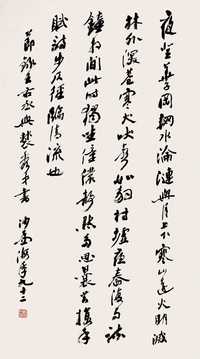 夜登華子岡輞水淪漣與月上下寒山遠火明滅
林外深巷寒犬吠聲如豹村墟夜舂復與疏
鐘相間此時獨坐僮僕靜默多思曩昔攜手
賦詩步仄徑臨清流也
節錄王右丞與裴秀才書 沙孟海年九十二